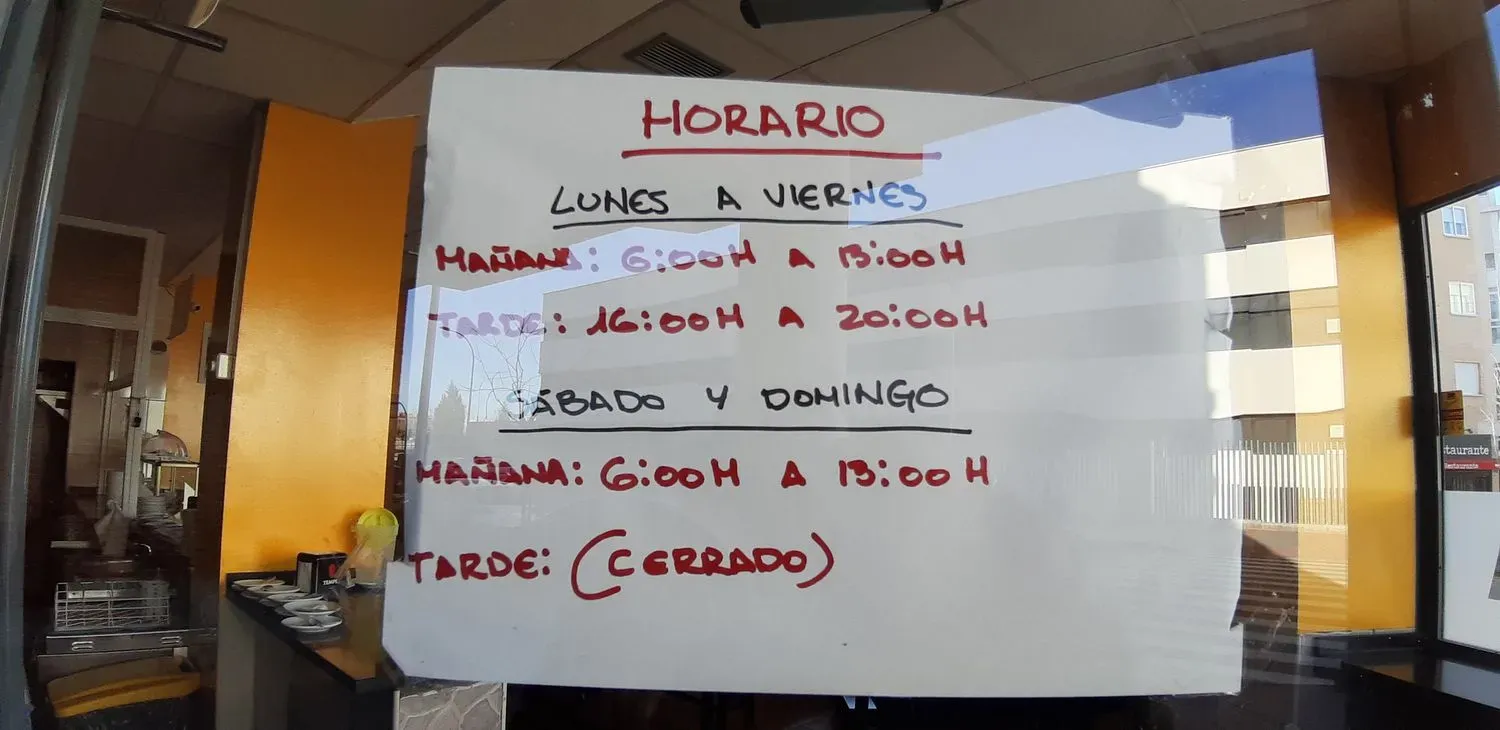 HORARIO
LUNES A VIERNES
MAÑANA: 6:00H A 13:00H
TARDE: 16:00H A 20:00H
SÁBADO Y DOMINGO
MAÑANA: 6:00H A 13:00H
TARDE: (CERRADO)
taurante
Restaurante